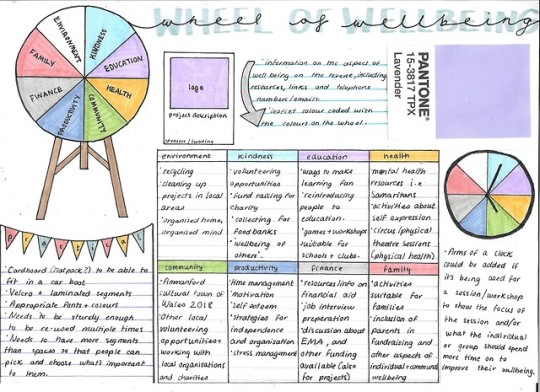 WHEEL OF WELLBEING
wheel of wellbeing
ENVIRONMENT
KINDNESS
EDUCATION
HEALTH
COMMUNITY
PRODUCTIVITY
FINANCE
FAMILY
logo
project description
· information on the aspect of
well being on the level, including
resources, links and telephone
numbers/emails.
· leaflet colour coded with
the colours on the wheel.
PANTONE®
15-3817 TPX
Lavender
environment
· recycling
· cleaning up
projects in local
areas
· organised home,
organised mind
kindness
· volunteering
opportunities
· fund raising for
charity
· collecting for
food banks
· wellbeing of
others'.
education
· ways to make
learning fun
· reintroducing
people to
education.
· games + workshops
suitable for
schools + clubs.
health
· mental health
resources i.e
Samaritans
· activities about
self expression
· circus/physical
theatre sessions
(physical health)
community
· Ammanford
cultural town of
Wales 2018
· Other local
volunteering
opportunities +
working with
local organisations
and charities
productivity
· time management
· motivation
· self esteem
· strategies for
independence
and organisation
· stress management
finance
· resources/info on
financial aid
· job interview
preparation
· discussion about
EMA, and
other funding
available (also
for projects)
family
· activities
suitable for
families
· inclusion of
parents in
fundraising and
other aspects of
individual + community
wellbeing
practical
· Cardboard (flatpack?) to be able to
fit in a car boot
· Velcro + laminated segments
· Appropriate fonts + colours
· Needs to be sturdy enough
to be re-used multiple times
· Needs to have more segments
than spaces so that people can
pick and choose what's important
to them.
· Arms of a clock
could be added if
it's being used for
a session/workshop
to show the focus of
the session and/or
what the individual
or group should spend
more time on to
improve their wellbeing.